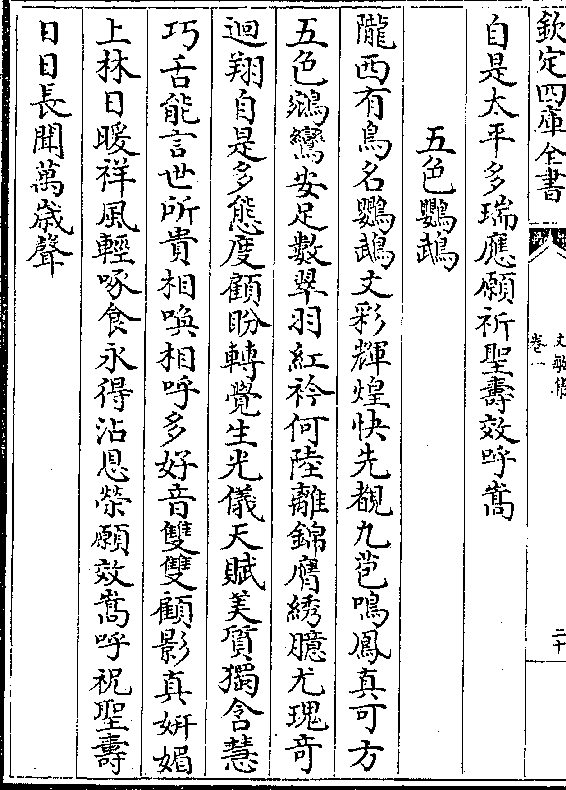 欽定四庫全書
卷一
二十
自是太平多瑞應願祈聖壽效呼嵩
五色鸚鵡
隴西有鳥名鸚鵡文彩輝煌快先覩九苞鳴鳳真可方
五色鵷鸞安足數翠羽紅衿何陸離錦膺綉臆尤瑰奇
迴翔自是多態度顧盼轉覺生光儀天賦美質獨含慧
巧舌能言世所貴相喚相呼多好音雙雙顧影真妍媚
上林日暖祥風輕啄食永得沾恩榮願效嵩呼祝聖壽
日日長聞萬歲聲